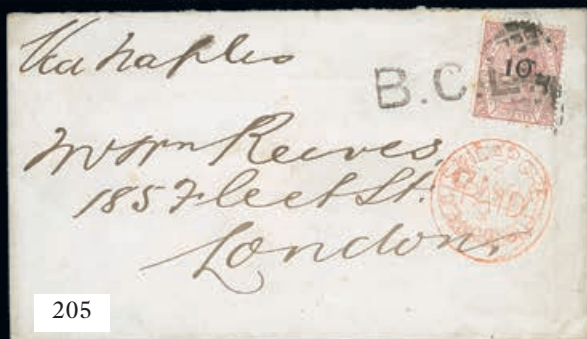 Via Naples
B.C.L
10
Mr Wm Reeves
185 Fleet St.
London
PAID
205